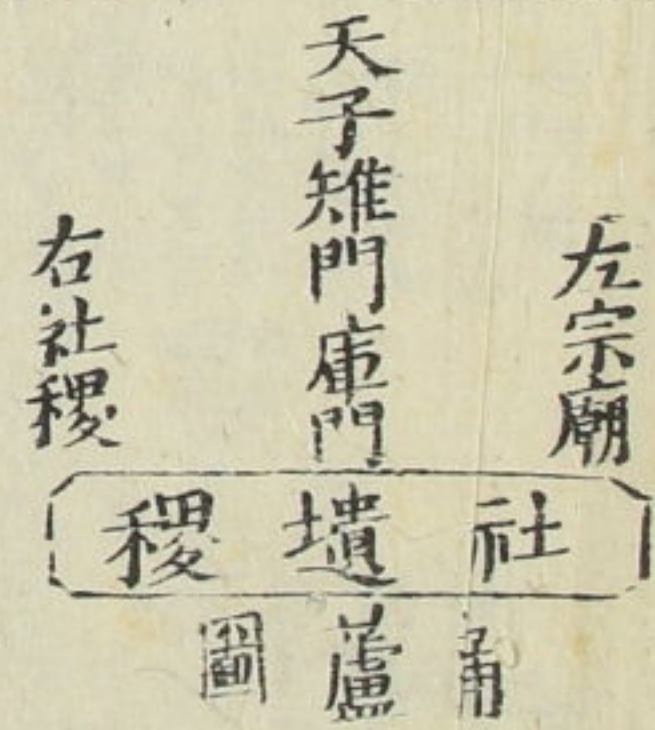 左宗廟
天子雉門庫門
右社稷
社壝稷
蘆圖